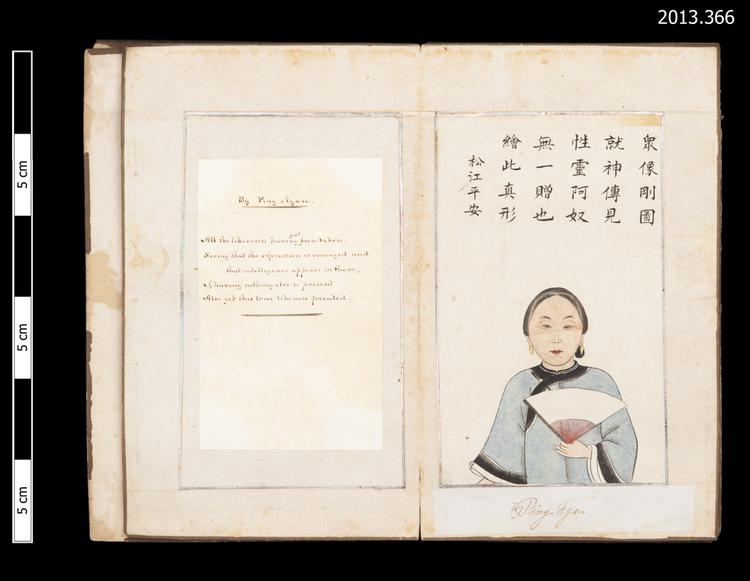 2013.366
5 cm
5 cm
5 cm
By Ping Ngan.
All the likenesses having just been taken,
Seeing that the expression is conveyed and
that intelligence appears in them,
I, having nothing else to present
Also get this true likeness painted.
眾像剛圖
就神傳見
性靈阿奴
無一贈也
繪此真形
松江平安
Ping Ngan